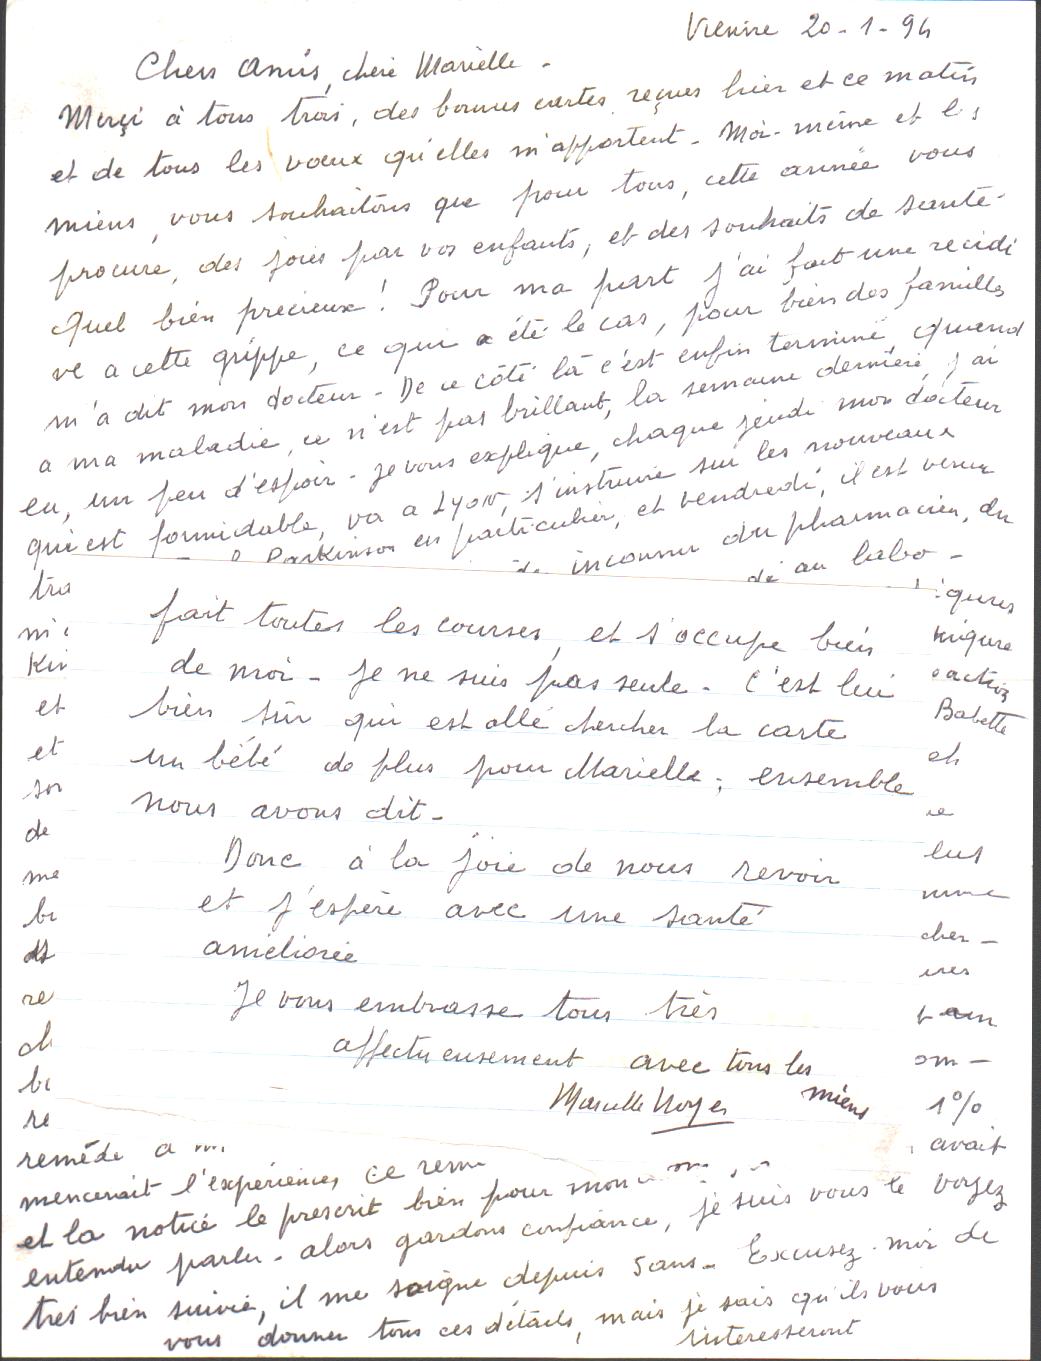 Vienne 20-1-94
Chers Amis, chère Marielle -
Merçi à tous trois, des bonnes cartes reçues hier et ce matin
et de tous les vœux qu'elles m'apportent - Moi-même et les
miens, vous souhaitons que pour tous, cette année vous
procure, des joies par vos enfants, et des souhaits de santé
Quel bien précieux! Pour ma part j'ai fait une recidi
ve a cette grippe, ce qui a été le cas, pour bien des familles
m'a dit mon docteur - De ce côté là c'est enfin terminé, Quand
a ma maladie, ce n'est pas brillant, la semaine dernière, j'ai
eu, un peu d'espoir - Je vous explique, chaque jeudi mon docteur
qui est formidable, va a Lyon, s'instruire sur les nouveaux
Parkinson en particulier, et vendredi, il est venu
inconnu du pharmacien, du
au labo -
fait toutes les courses, et s'occupe bien
de moi - Je ne suis pas seule - C'est lui
bien sûr qui est allé chercher la carte
un bébé de plus pour Marielle; ensemble
nous avons dit -
Donc à la joie de nous revoir
et j'espère avec une santé
améliorée
Je vous embrasse tous très
affectueusement avec tous les
miens
tra
Kin
et
et
de
me
re
re
Babette
eh
cher -
1%
avait
remède a
mencerait l'expérience, ce
et la notice le prescrit bien pour mon
entendu parler - alors gardons confiance, je suis vous le voyez
très bien suivie, il me soigne depuis 5 ans - Excusez-moi de
vous donner tous ces détails, mais je sais qu'ils vous
interesseront